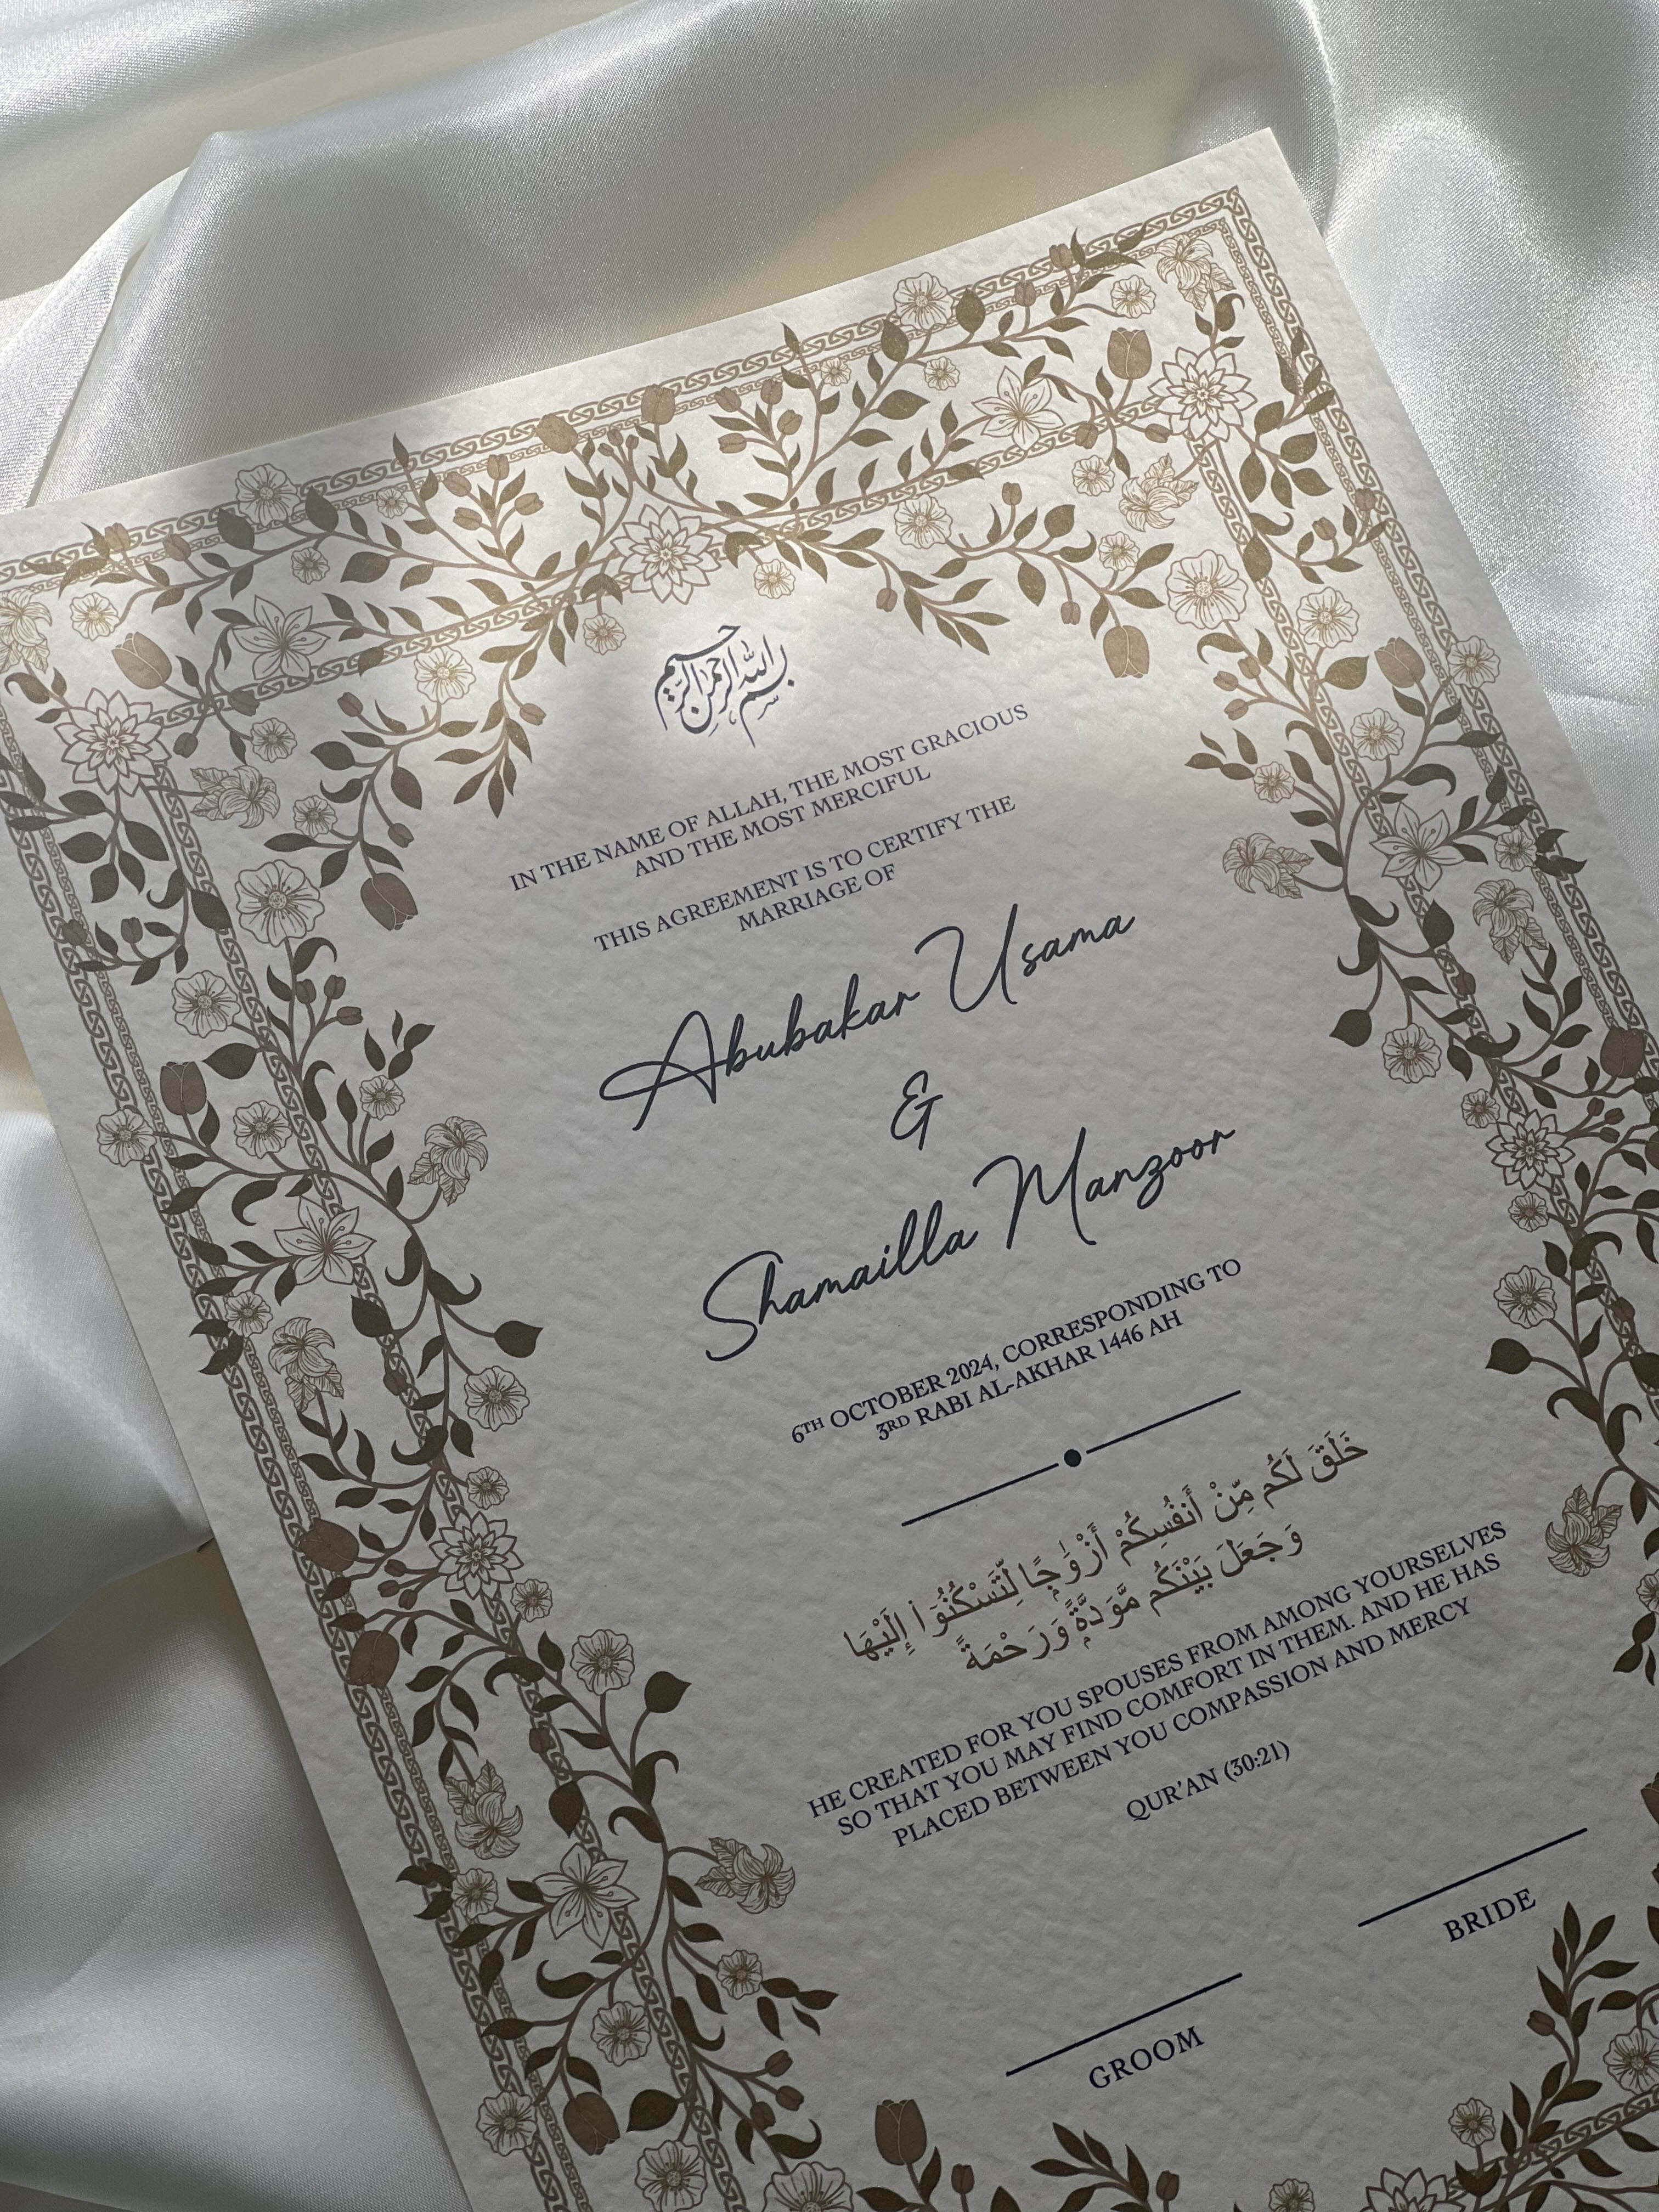 بسم الله الرحمن الرحيم
IN THE NAME OF ALLAH, THE MOST GRACIOUS
AND THE MOST MERCIFUL
THIS AGREEMENT IS TO CERTIFY THE
MARRIAGE OF
Abubakar Usama
&
Shamailla Manzoor
6TH OCTOBER 2024, CORRESPONDING TO
3RD RABI AL-AKHAR 1446 AH
خَلَقَ لَكُم مِّنْ أَنفُسِكُمْ أَزْوَٰجًا لِّتَسْكُنُوٓا۟ إِلَيْهَا
وَجَعَلَ بَيْنَكُم مَّوَدَّةً وَرَحْمَةً
HE CREATED FOR YOU SPOUSES FROM AMONG YOURSELVES
SO THAT YOU MAY FIND COMFORT IN THEM. AND HE HAS
PLACED BETWEEN YOU COMPASSION AND MERCY
QUR'AN (30:21)
GROOM
BRIDE